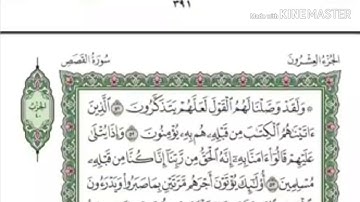 ٣٩١
Made with KINEMASTER
الجزء العشرون
سورة القصص
۞ ولقد وصلنا لهم القول لعلهم يتذكرون ٥١ الذين
ءاتينهم الكتب من قبله هم به يؤمنون ٥٢ وإذا يتلى
عليهم قالوا ءامنا به إنه الحق من ربنا إنا كنا من قبله
مسلمين ٥٣ أولئك يؤتون أجرهم مرتين بما صبروا ويدرءون
الحزب
٤٠